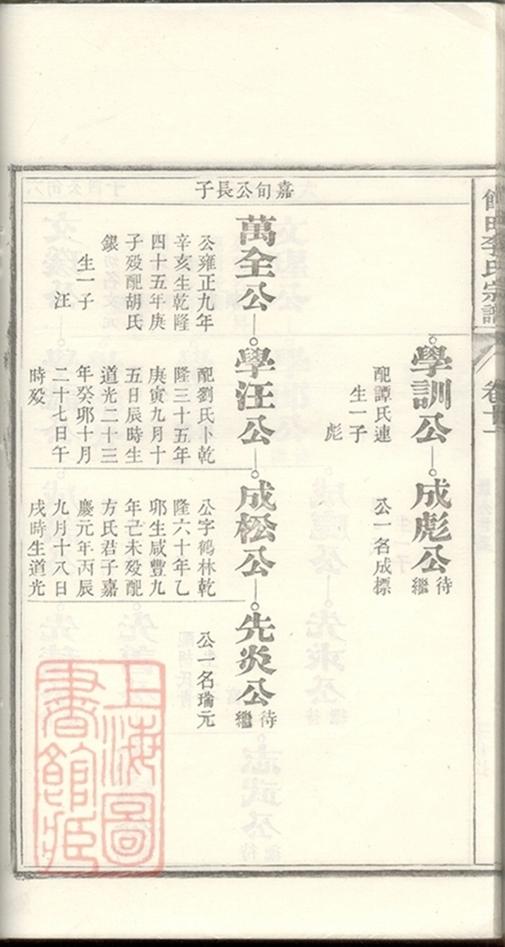 館田李氏宗譜
卷
學訓公
成彪公
待繼
配譚氏連
生一子
彪
公一名成標
嘉旬公長子
萬全公
學汪公
成松公
先炎公
待繼
公雍正九年
辛亥生乾隆
四十五年庚
子歿配胡氏
銀
生一子
汪
配劉氏卜乾
隆三十五年
庚寅九月十
五日辰時生
道光二十三
年癸卯十月
二十七日午
時歿
公字鶴林乾
隆六十年乙
卯生咸豐九
年己未歿配
方氏君子嘉
慶元年丙辰
九月十八日
戌時生道光
公一名瑞元
上海圖
書館藏